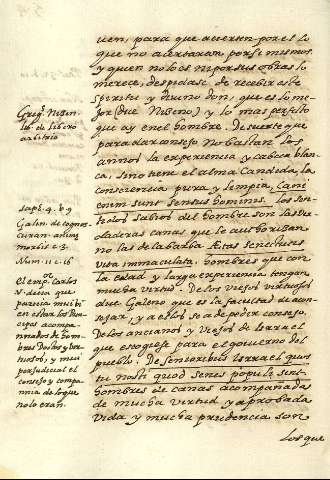 uen, para que acierten por el lo
que no acertaran por si mismos
y quien no lo es ni por sus obras lo
merece, despidase de recebir este
Spiritu y divino don, que es lo me-
jor (dize Niseno) y lo mas perfecto
que ay en el hombre. De suerte que
para dar consejo no bastan los
annos la experiencia y cabeza blan
ca, sino tiene el alma candida, la
consciencia pura y limpia, Cani
enim sunt sensus hominis. Los sen-
tidos sabios del hombre son las ver
daderas canas que le authorizan
no las de la barba. Ætas senectutis
vita immaculata. hombres que con
la edad y larga experiencia tengan
mucha virtud. De los viejos virtuosos
dize Galeno que es la facultad de acon
sejar, y a ellos se a de pedir consejo.
De los ancianos y viejos de Israel
que escogiese para el gouierno del
pueblo. De senioribus Israel quos
tu nosti quod senes populi sint
hombres de canas acompañadas
de mucha virtud y aprobada
vida y mucha prudencia son
los que
Greg. Nisen
lib. de libero
arbitrio
Sap. 4. v. 9
Galen. de cognos
curan. animi
morbis c. 3.
Num. 11. v. 16
El emp. Carlos
V. dezia que
parecia mui bi
en estar los Prin
cipes acompa
ñados de hom
bres Doctos y vir
tuosos, y mui
perjudicial el
consejo y compa
ñia de los que
no lo eran.